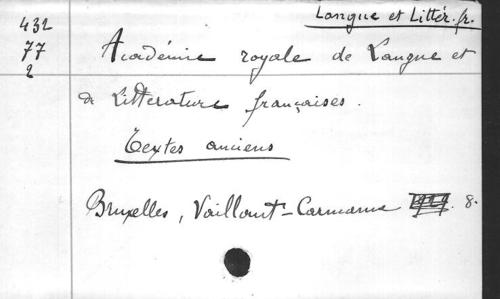 Langue et Littér. fr.
432
77
2
Académie royale de Langue et
de Littérature françaises.
Textes anciens
Bruxelles, Vaillant-Carmanne 8.